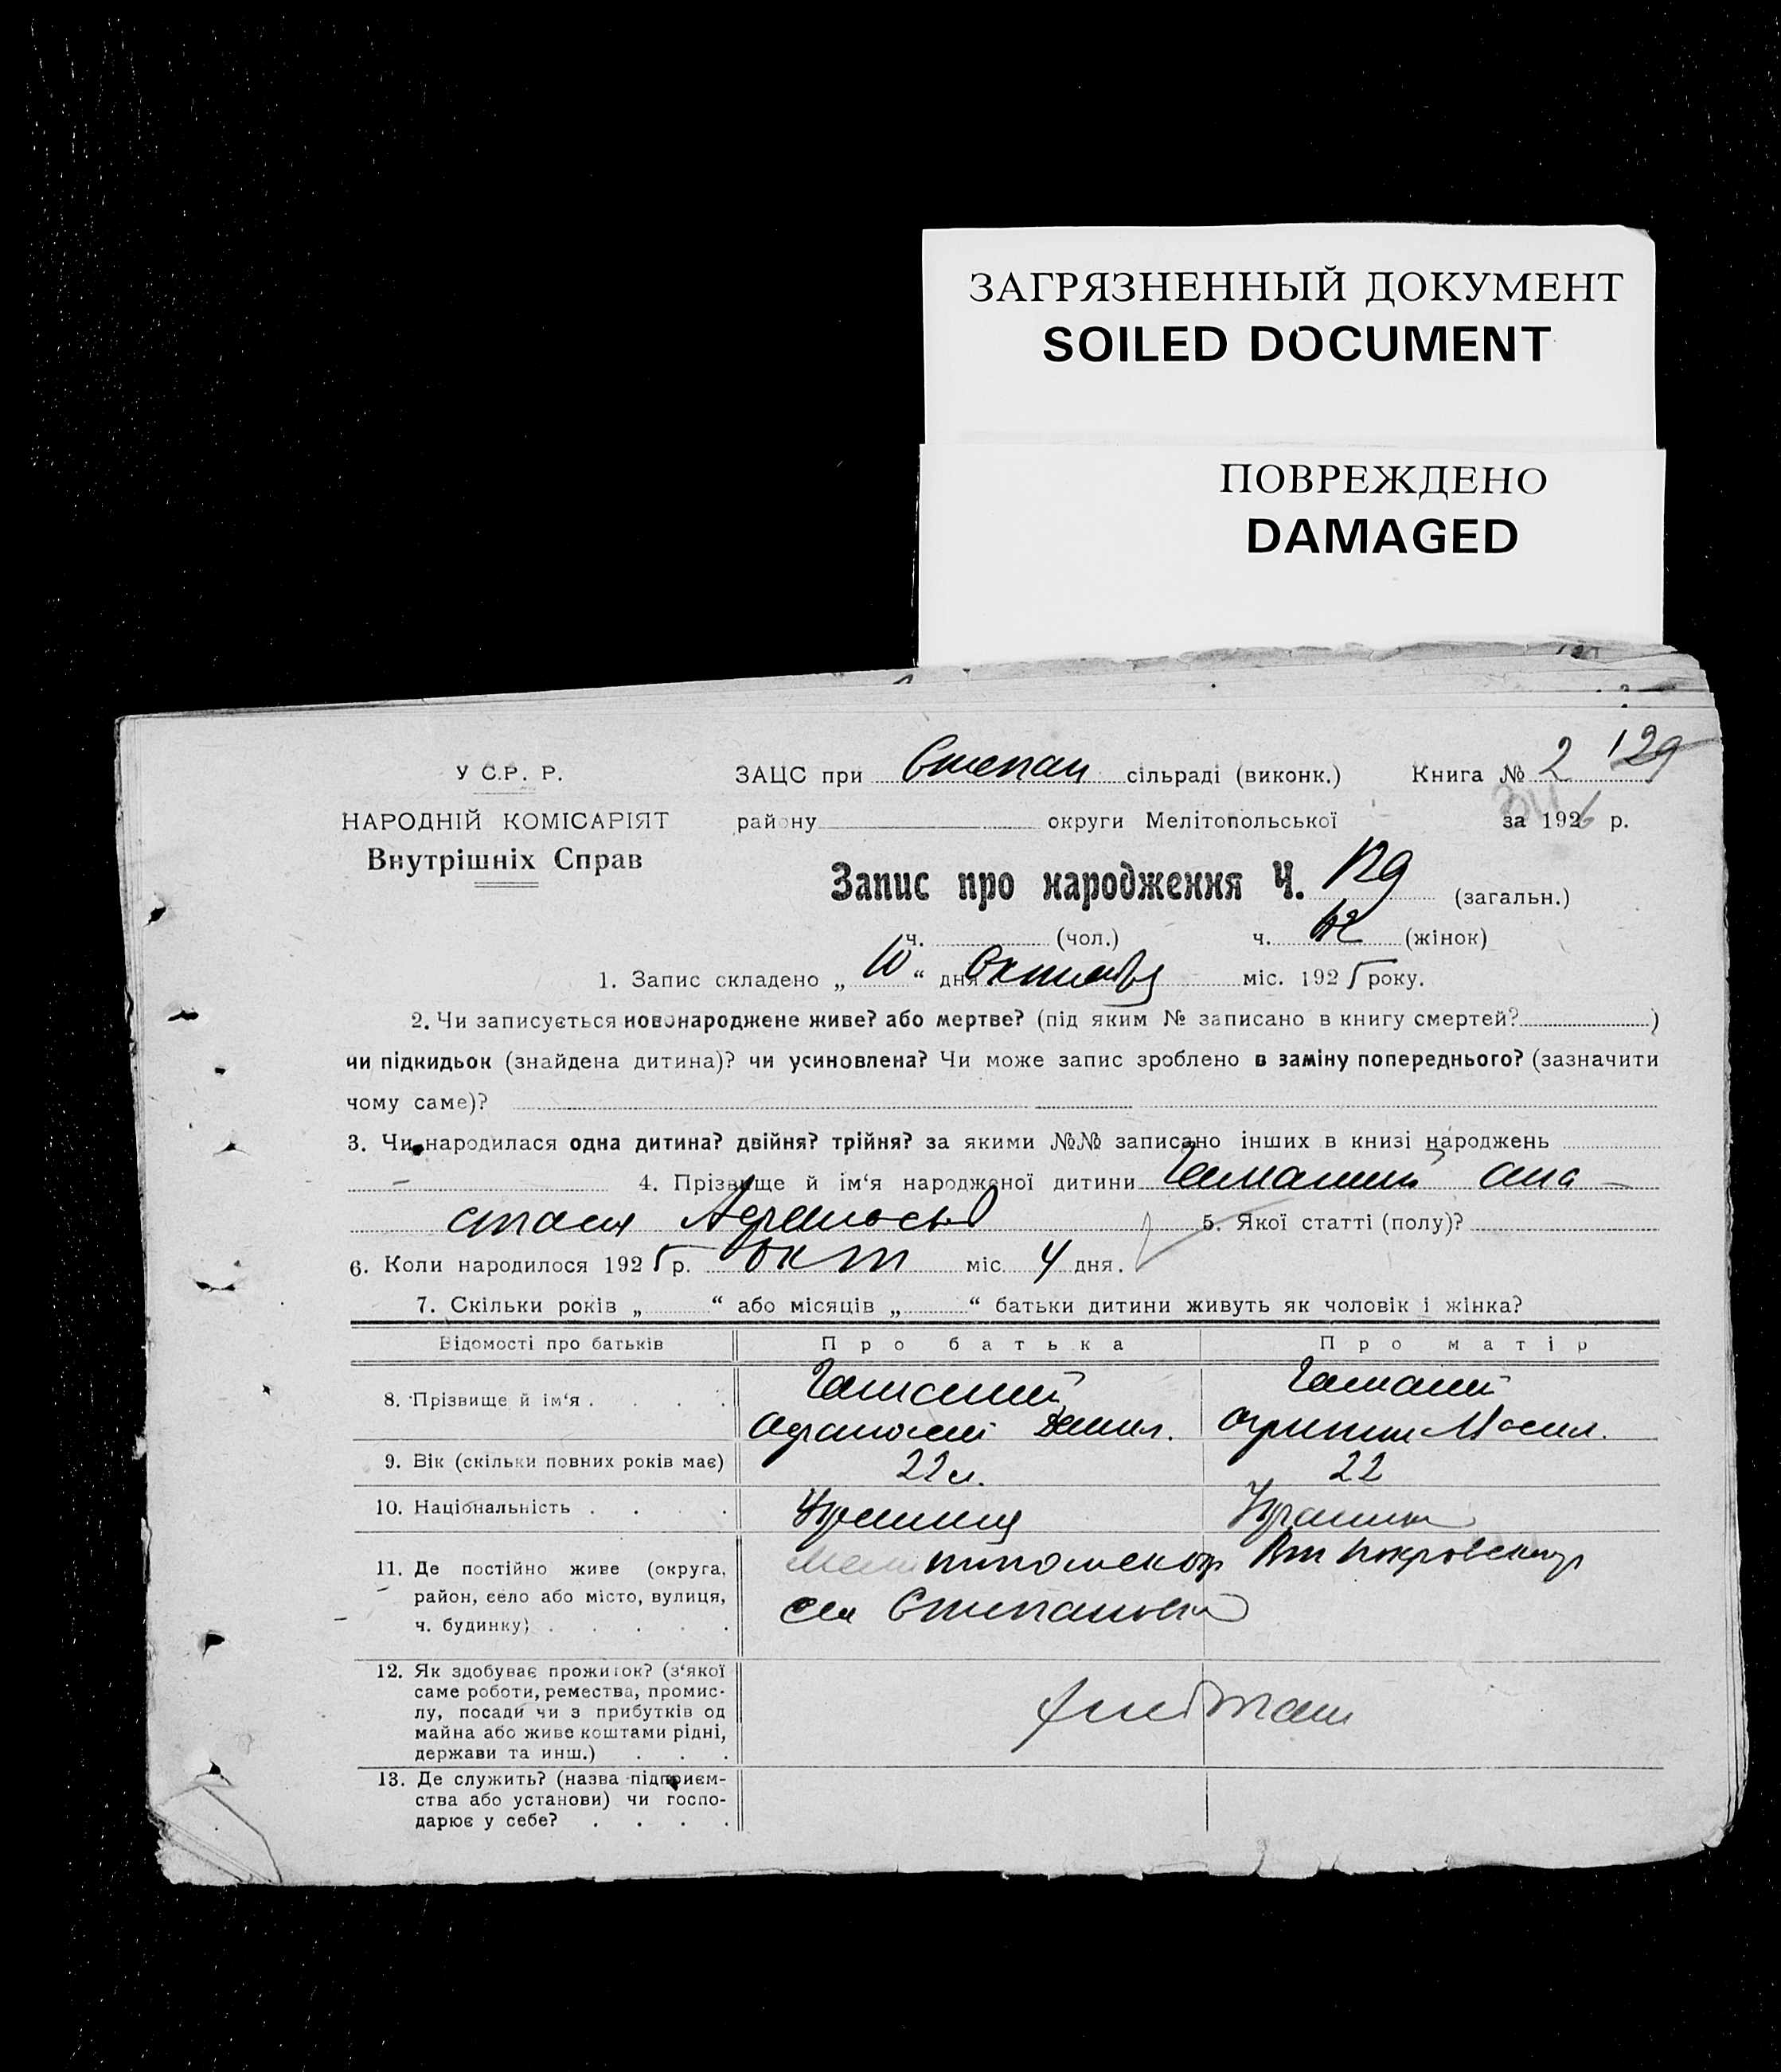 ЗАГРЯЗНЕННЫЙ ДОКУМЕНТ
SOILED DOCUMENT
ПОВРЕЖДЕНО
DAMAGED
У С.Р. Р.
НАРОДНІЙ КОМІСАРІЯТ
Внутрішніх Справ
ЗАЦС при Степан сільраді (виконк.) Книга № 2 129
району округи Мелітопольської за 192 р.
Запис про народження Ч. 129 (загальн.)
ч. (чол.) ч. (жінок)
1. Запис складено „ 10 “ дня Октября міс. 1925 року.
2. Чи записується новонароджене живе? або мертве? (під яким № записано в книгу смертей? )
чи підкидьок (знайдена дитина)? чи усиновлена? Чи може запис зроблено в заміну попереднього? (зазначити
чому саме)?
3. Чи народилася одна дитина? двійня? трійня? за якими №№ записано інших в книзі народжень
4. Прізвище й ім‘я народженої дитини Ана-
стасия 5. Якої статті (полу)?
6. Коли народилося 1925 р. окт міс. 4 дня.
7. Скільки років „ “ або місяців „ “ батьки дитини живуть як чоловік і жінка?
Відомості про батьків Про батька Про матір
8. Прізвище й ім‘я
9. Вік (скільки повних років має) 22 22
10. Національність
11. Де постійно живе (округа,
район, село або місто, вулиця,
ч. будинку)
сел Степановка
12. Як здобуває прожиток? (з‘якої
саме роботи, ремества, промис-
лу, посади чи з прибутків од
майна або живе коштами рідні,
держави та инш.)
13. Де служить? (назва підприєм-
ства або установи) чи госпо-
дарює у себе?